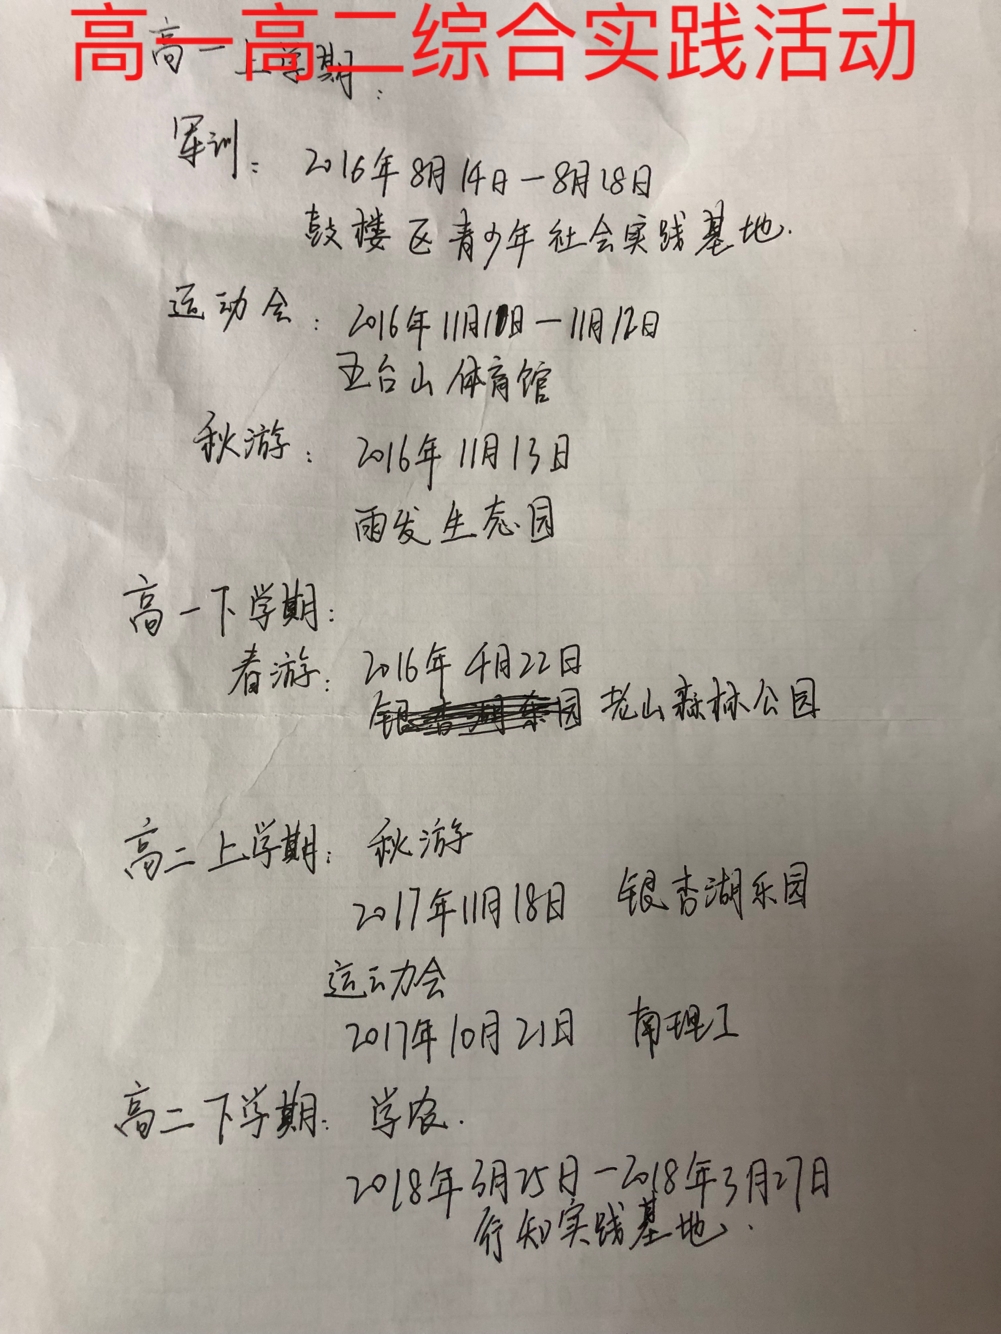 高一高二综合实践活动
高一上学期：
军训： 2016年8月14日－8月18日
鼓楼区青少年社会实践基地.
运动会： 2016年11月11日－11月12日
五台山体育馆
秋游： 2016年11月13日
雨发生态园
高一下学期：
春游： 2016年4月22日
老山森林公园
高二上学期： 秋游
2017年11月18日 银杏湖乐园
运动会
2017年10月21日 南理工
高二下学期： 学农.
2018年3月25日－2018年3月27日
行知实践基地.